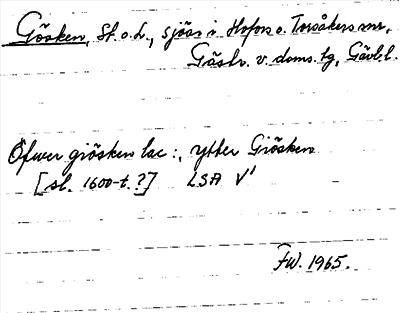 Gösken, St. o. L., sjöar i Hofors o. Torsåkers snr,
Gästr. v. doms. tg, Gävleb. l.
Öfwer giösken lac:, ytter Giösken
[sl. 1600-t.?] LSA V'
FW. 1965.